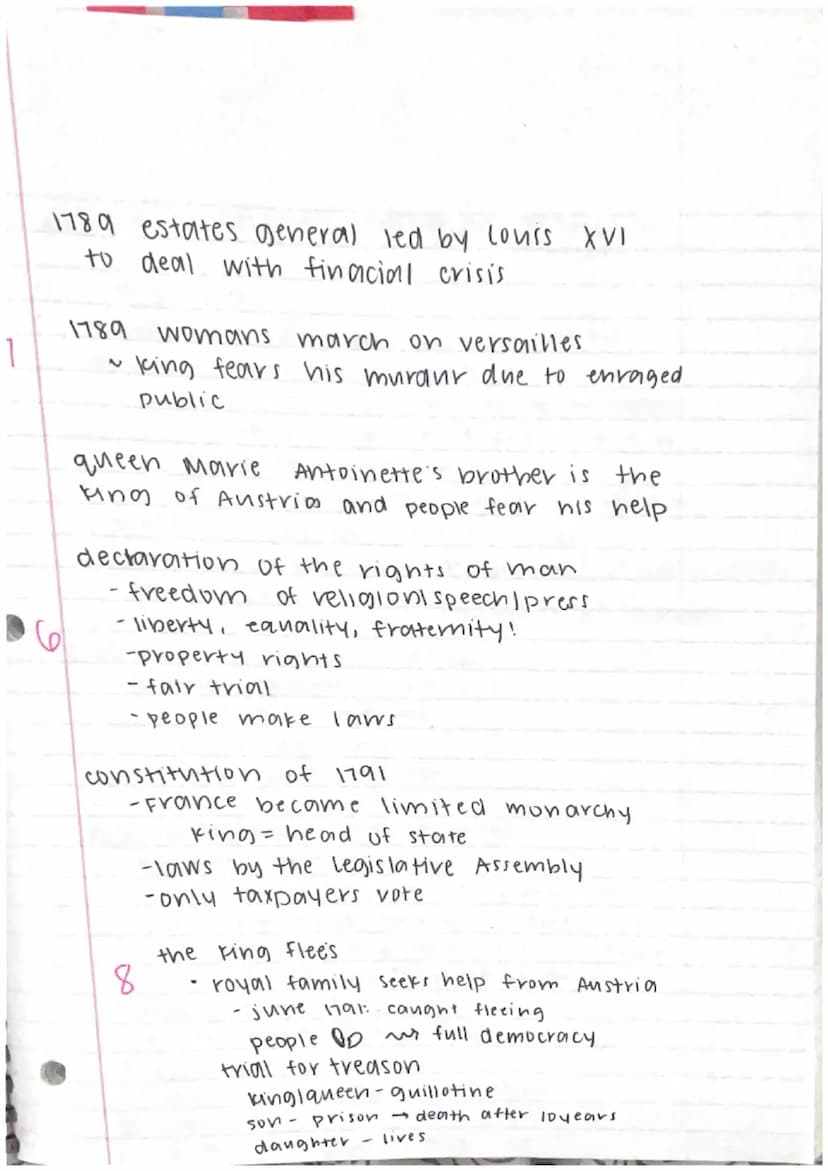 1789 estates general led by louis XVI
to deal with finacial crisis
1789 womans march on versailles
1
~ king fears his muraur due to enraged
public
queen Marie Antoinette's brother is the
king of Austria and people fear his help
declaration of the rights of man
- freedom of religion/speech/press
6
- liberty, equality, fraternity!
- property rights
- fair trial
- people make laws
constitution of 1791
- France became limited monarchy
king = head of state
- laws by the Legislative Assembly
- only taxpayers vote
the king flee's
8
• royal family seeks help from Austria
- june 1791: caught fleeing
people full democracy
trial for treason
king/queen - guillotine
son - prison → death after 10 years
daughter - lives